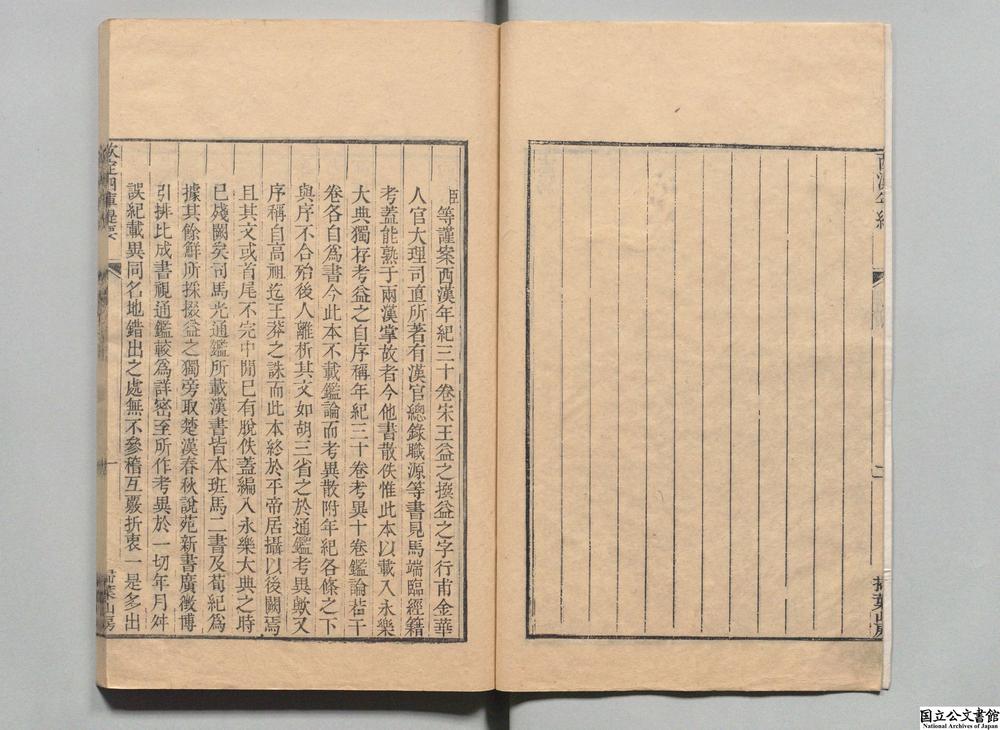 西漢年紀
二
掃葉山房
臣等謹案西漢年紀三十卷宋王益之撰益之字行甫金華
人官大理司直所著有漢官總錄職源等書見馬端臨經籍
考蓋能熟于兩漢掌故者今他書散佚惟此本以載入永樂
大典獨存考益之自序稱年紀三十卷考異十卷鑑論若干
卷各自爲書今此本不載鑑論而考異散附年紀各條之下
與序不合殆後人離析其文如胡三省之於通鑑考異歟又
序稱自高祖迄王莽之誅而此本終於平帝居攝以後闕焉
且其文或首尾不完中閒已有脫佚蓋編入永樂大典之時
已殘闕矣司馬光通鑑所載漢書皆本班馬二書及荀紀爲
據其餘鮮所採掇益之獨旁取楚漢春秋說苑新書廣徵博
引排比成書視通鑑較爲詳密至所作考異於一切年月舛
誤紀載異同名地錯出之處無不參稽互覈折衷一是多出
欽定四庫提要
一
掃葉山房
国立公文書館
National Archives of Japan